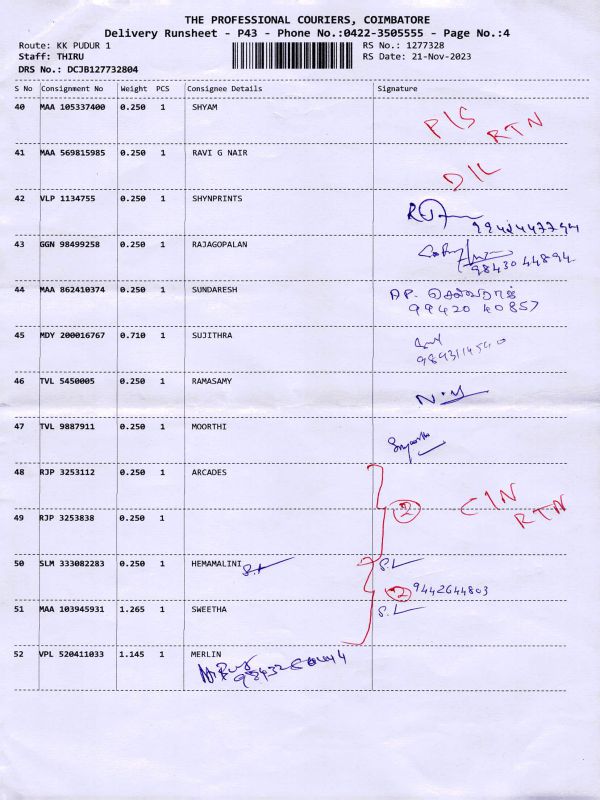 THE PROFESSIONAL COURIERS, COIMBATORE
Delivery Runsheet - P43 - Phone No.:0422-3505555 - Page No.:4
Route: KK PUDUR 1 RS No.: 1277328
Staff: THIRU RS Date: 21-Nov-2023
DRS No.: DCJB127732804
S No Consignment No Weight PCS Consignee Details Signature
40 MAA 105337400 0.250 1 SHYAM P/S RTN
41 MAA 569815985 0.250 1 RAVI G NAIR D/L
42 VLP 1134755 0.250 1 SHYNPRINTS
43 GGN 98499258 0.250 1 RAJAGOPALAN
9843044894
44 MAA 862410374 0.250 1 SUNDARESH AP. செல்வராஜ்
99420 40857
45 MDY 200016767 0.710 1 SUJITHRA
46 TVL 5450005 0.250 1 RAMASAMY
47 TVL 9887911 0.250 1 MOORTHI
48 RJP 3253112 0.250 1 ARCADES
2 C/N RTN
49 RJP 3253838 0.250 1
50 SLM 333082283 0.250 1 HEMAMALINI S.L S.L
2 9442644803
51 MAA 103945931 1.265 1 SWEETHA S.L
52 VPL 520411033 1.145 1 MERLIN